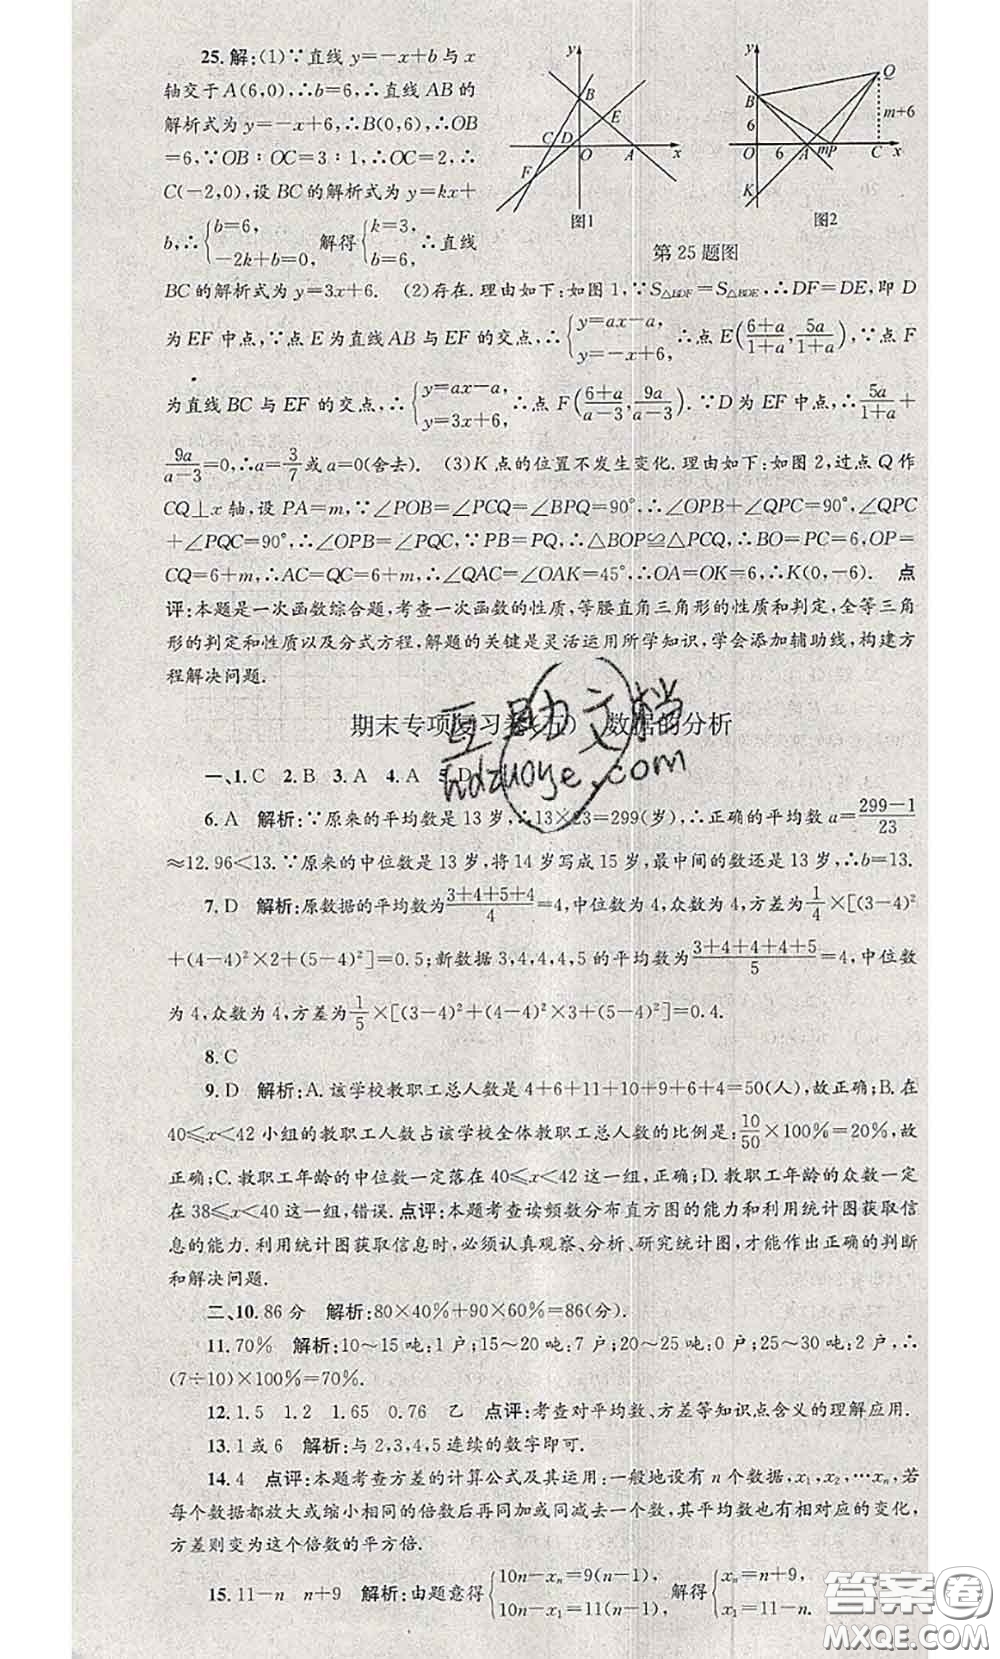 25.解:(1)∵直线 y=-x+b 与 x
轴交于 A(6,0),∴b=6,∴直线 AB 的
解析式为 y=-x+6,∴B(0,6),∴OB
=6,∵OB∶OC=3∶1,∴OC=2,∴
C(-2,0),设 BC 的解析式为 y=kx+
b,∴{b=6, -2k+b=0, 解得{k=3, b=6, ∴直线
y B E C D O A x F 图1
y B Q 6 m+6 O 6 A m P C x K 图2
第 25 题图
BC 的解析式为 y=3x+6. (2)存在.理由如下:如图 1,∵S△BDF=S△BDE,∴DF=DE,即 D
为 EF 中点,∵点 E 为直线 AB 与 EF 的交点,∴{y=ax-a, y=-x+6, ∴点 E(6+a/1+a, 5a/1+a),∵点 F
为直线 BC 与 EF 的交点,∴{y=ax-a, y=3x+6, ∴点 F(6+a/a-3, 9a/a-3).∵D 为 EF 中点,∴5a/1+a+
9a/a-3=0,∴a=3/7或 a=0(舍去). (3)K 点的位置不发生变化.理由如下:如图 2,过点 Q 作
CQ⊥x 轴,设 PA=m,∵∠POB=∠PCQ=∠BPQ=90°,∴∠OPB+∠QPC=90°,∠QPC
+∠PQC=90°,∴∠OPB=∠PQC,∵PB=PQ,∴△BOP≌△PCQ,∴BO=PC=6,OP=
CQ=6+m,∴AC=QC=6+m,∴∠QAC=∠OAK=45°,∴OA=OK=6,∴K(0,-6). 点
评:本题是一次函数综合题,考查一次函数的性质,等腰直角三角形的性质和判定,全等三角
形的判定和性质以及分式方程,解题的关键是灵活运用所学知识,学会添加辅助线,构建方
程解决问题.
期末专项复习卷(五) 数据的分析
互助文档
hdzuoye.com
一、1.C 2.B 3.A 4.A 5.D
6.A 解析:∵原来的平均数是 13 岁,∴13×23=299(岁),∴正确的平均数 a=299-1/23
≈12.96<13.∵原来的中位数是 13 岁,将 14 岁写成 15 岁,最中间的数还是 13 岁,∴b=13.
7.D 解析:原数据的平均数为3+4+5+4/4=4,中位数为 4,众数为 4,方差为1/4×[(3-4)²
+(4-4)²×2+(5-4)²]=0.5;新数据 3,4,4,4,5 的平均数为3+4+4+4+5/5=4,中位数
为 4,众数为 4,方差为1/5×[(3-4)²+(4-4)²×3+(5-4)²]=0.4.
8.C
9.D 解析:A.该学校教职工总人数是 4+6+11+10+9+6+4=50(人),故正确;B.在
40≤x<42 小组的教职工人数占该学校全体教职工总人数的比例是:10/50×100%=20%,故
正确;C.教职工年龄的中位数一定落在 40≤x<42 这一组,正确;D.教职工年龄的众数一定
在 38≤x<40 这一组,错误.点评:本题考查读频数分布直方图的能力和利用统计图获取信
息的能力.利用统计图获取信息时,必须认真观察、分析、研究统计图,才能作出正确的判断
和解决问题.
二、10.86 分 解析:80×40%+90×60%=86(分).
11.70% 解析:10～15 吨:1 户;15～20 吨:7 户;20～25 吨:0 户;25～30 吨:2 户,∴
(7÷10)×100%=70%.
12.1.5 1.2 1.65 0.76 乙 点评:考查对平均数、方差等知识点含义的理解应用.
13.1 或 6 解析:与 2,3,4,5 连续的数字即可.
14.4 点评:本题考查方差的计算公式及其运用:一般地设有 n 个数据,x₁,x₂,…xₙ,若
每个数据都放大或缩小相同的倍数后再同加或同减去一个数,其平均数也有相对应的变化,
方差则变为这个倍数的平方倍.
15.11-n n+9 解析:由题意得{10n-xₙ=9(n-1), 10n-x₁=11(n-1), 解得{xₙ=n+9, x₁=11-n.
答案圈
MXQE.COM